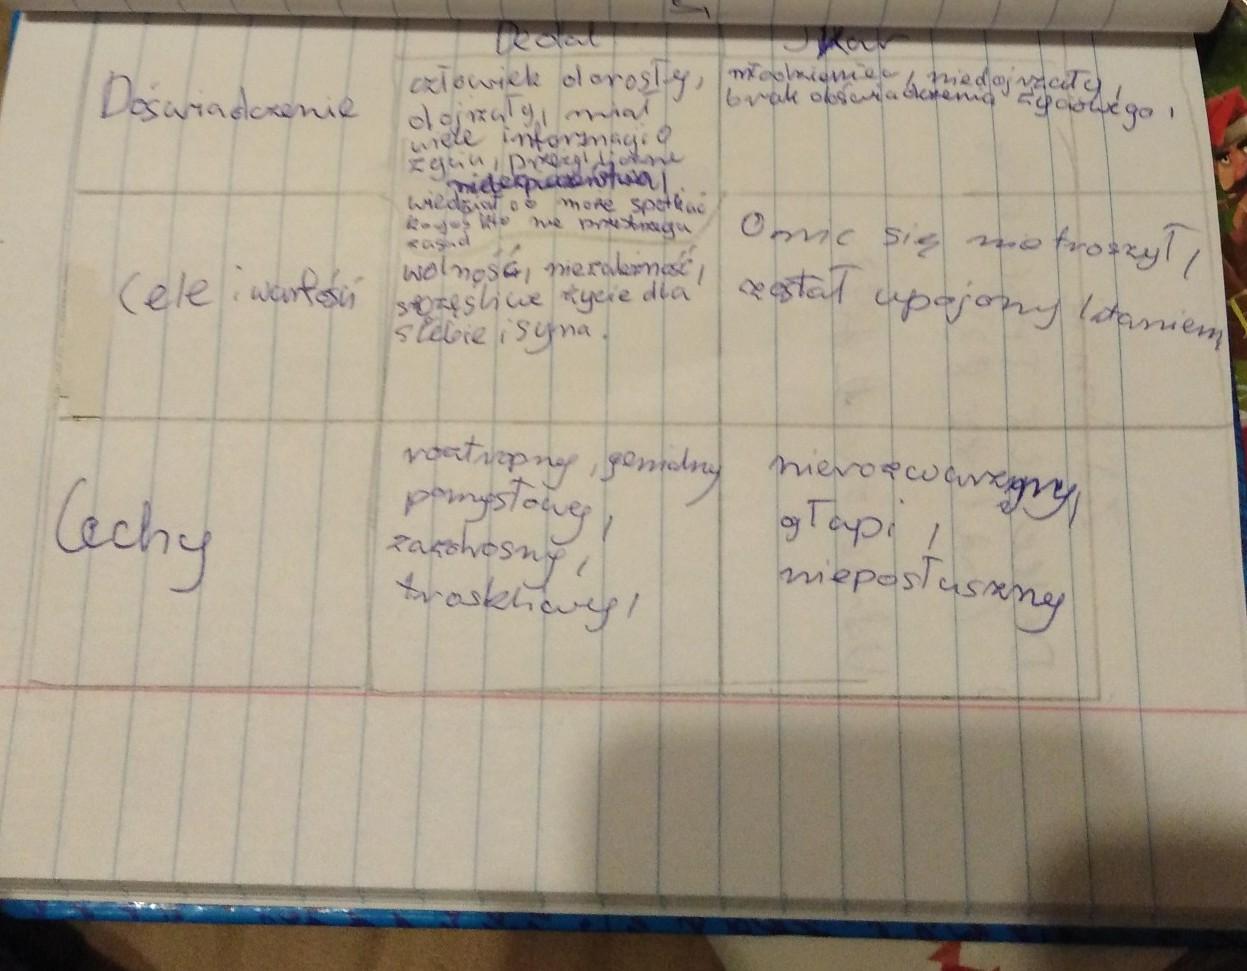 Dedal
Ikar
Doświadczenie
człowiek dorosły,
dojrzały, miał
wiele informacji o
życiu, przeżył liczne
niebezpieczeństwa,
wiedział co może spotkać
kogoś kto nie przestrzega
zasad
młodzieniec, niedojrzały,
brak doświadczenia życiowego,
Cele i wartości
wolność, niezależność,
szczęśliwe życie dla
siebie i syna.
O nic się nie troszczył,
został upojony lataniem
Cechy
roztropny, genialny
pomysłowy,
zazdrosny,
troskliwy,
nierozważny,
głupi,
nieposłuszny